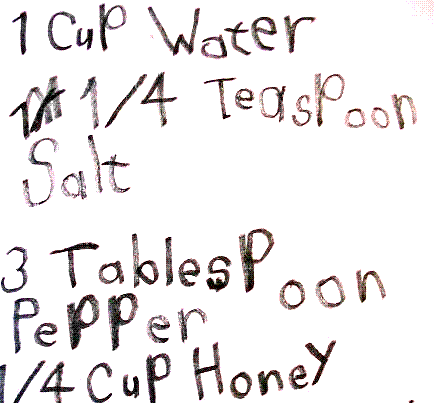 1 Cup Water
1/4 Teaspoon
Salt
3 Tablespoon
Pepper
1/4 Cup Honey